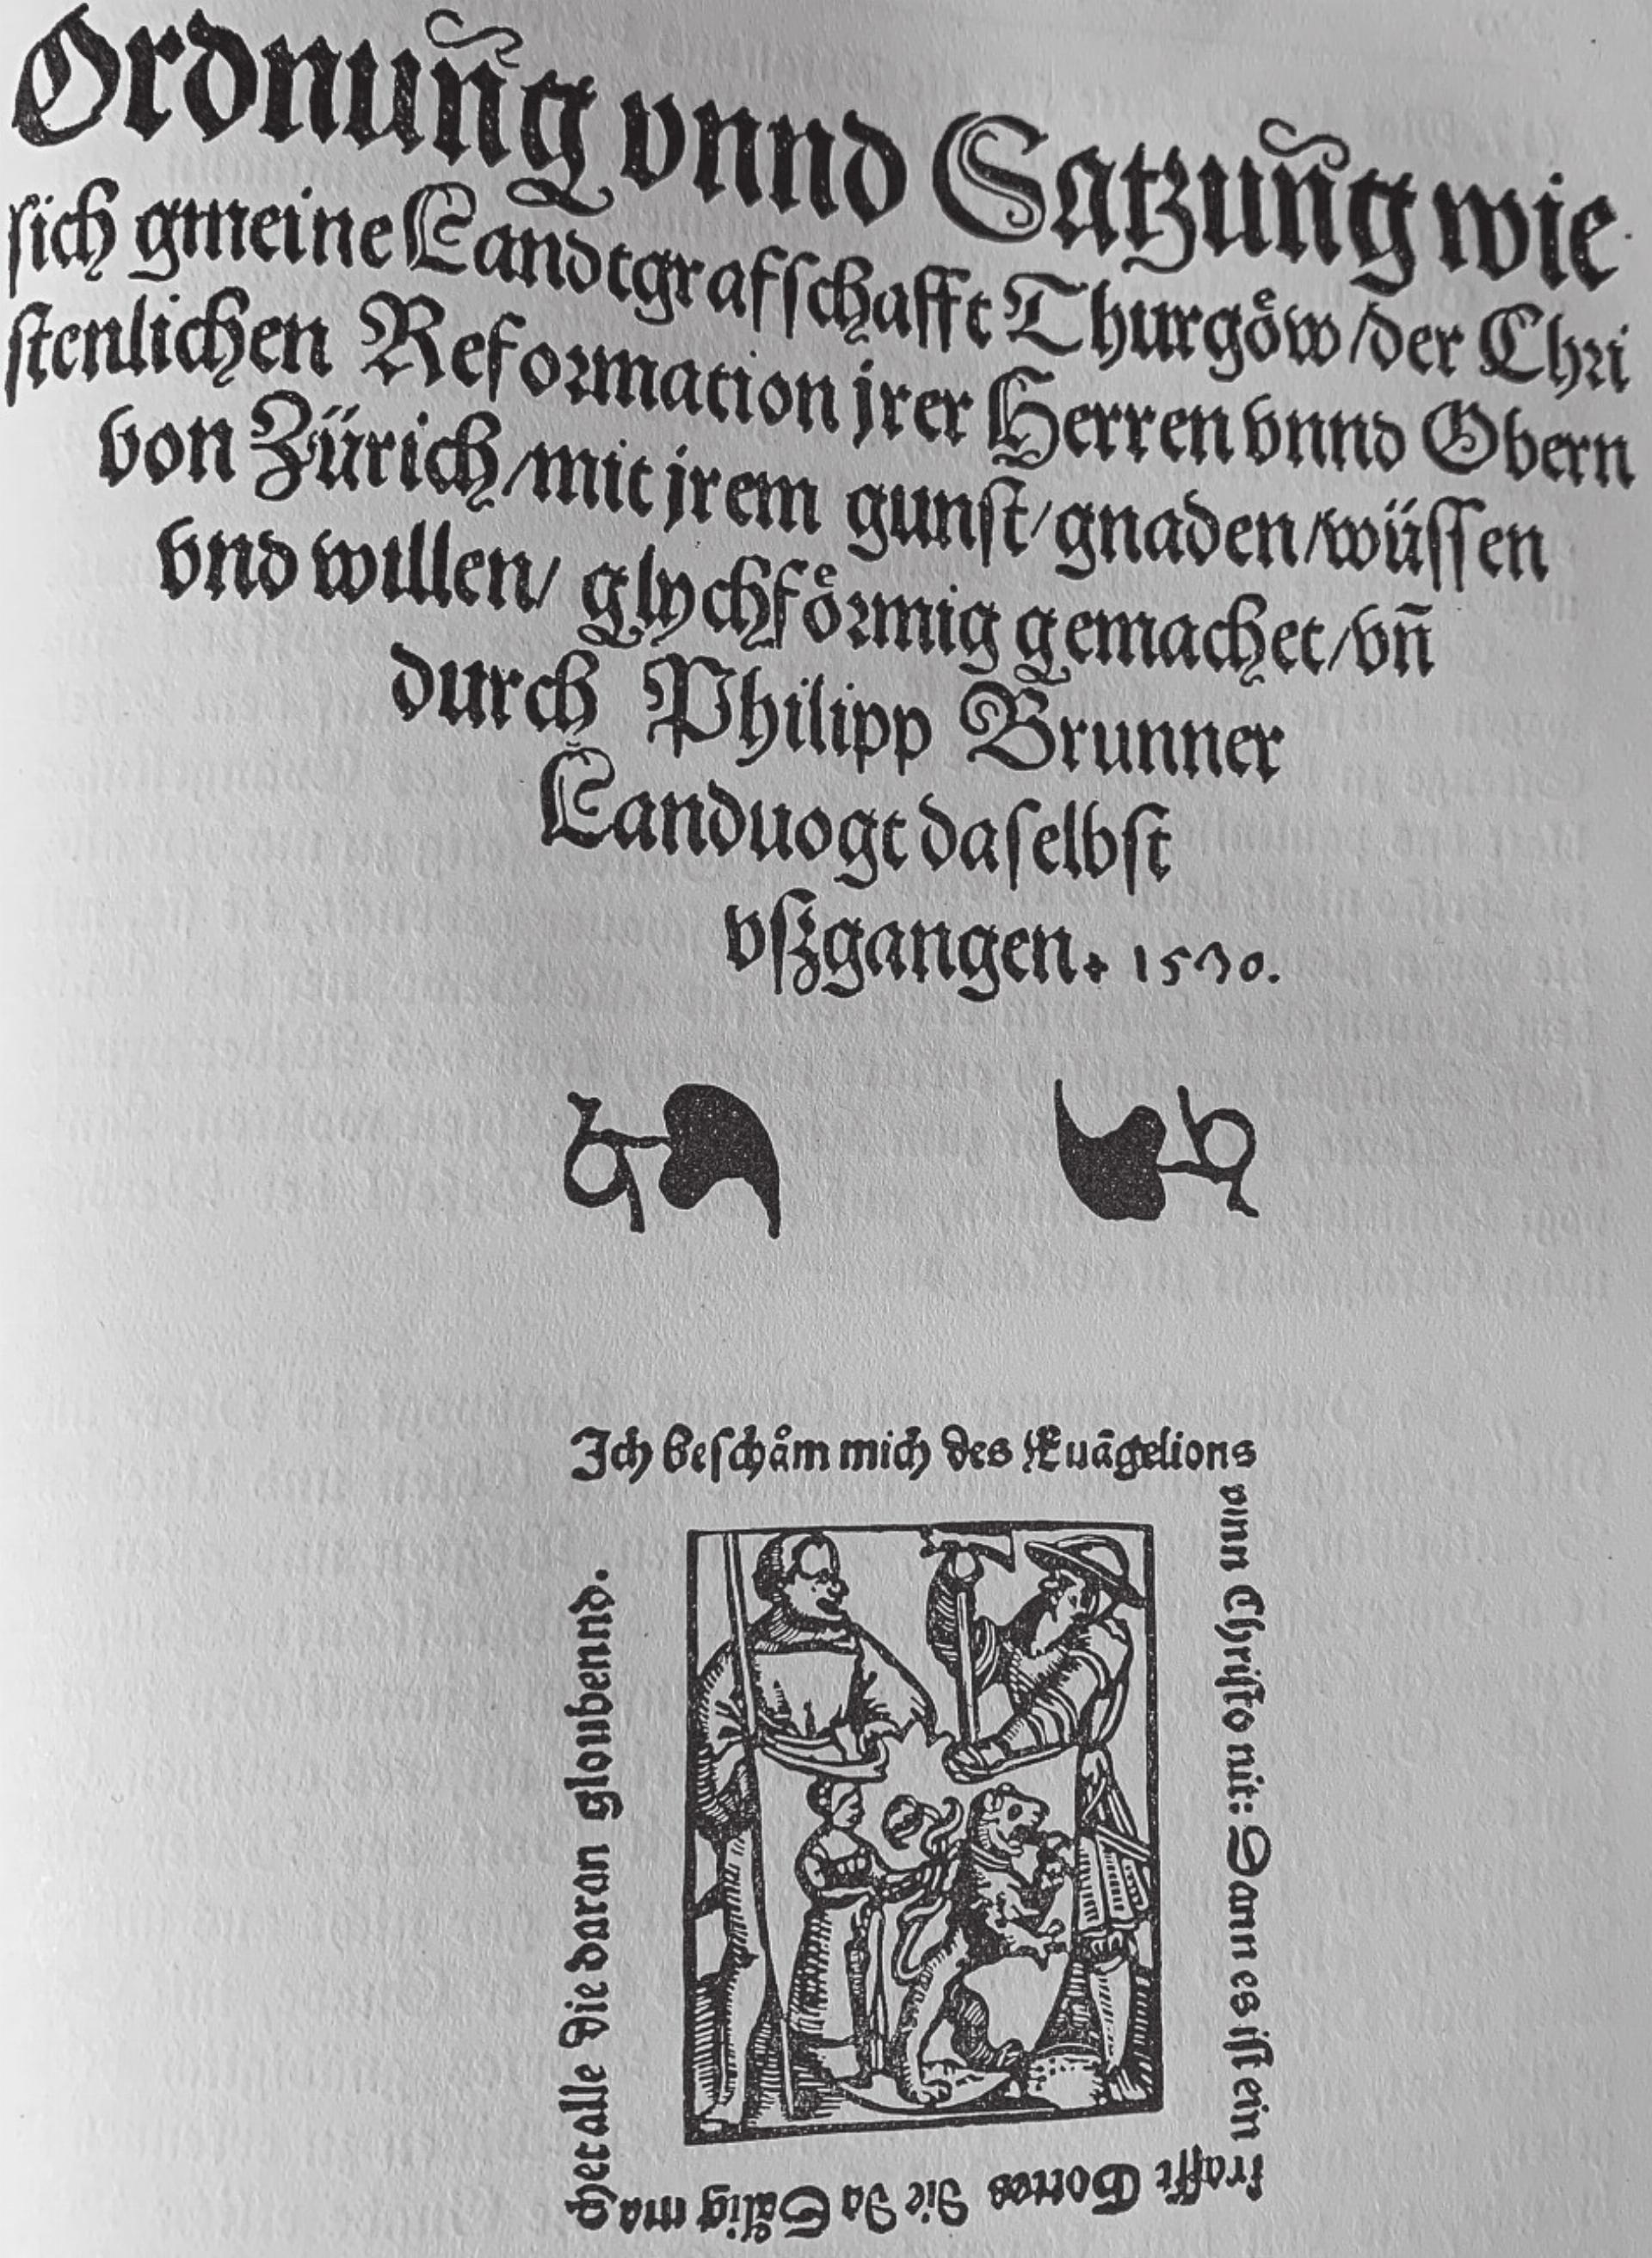 Ordnuñg vnnd Satzuñg wie
sich gmeine Landtgrafschafft Thurgoͤw / der Chri
stenlichen Reformation jrer Herren vnnd Obern
von Zürich / mit jrem gunst / gnaden / wüssen
vnd willen / glychfoͤrmig gemachet / vñ
durch Philipp Brunner
Landuogt daselbst
vſzgangen. 1530.
Ich beschaͤm mich des Euāgelions
vnn Christo nit: Dann es ist ein
krafft Gottes die da Saͤlig ma
chet alle die daran gloubennd.